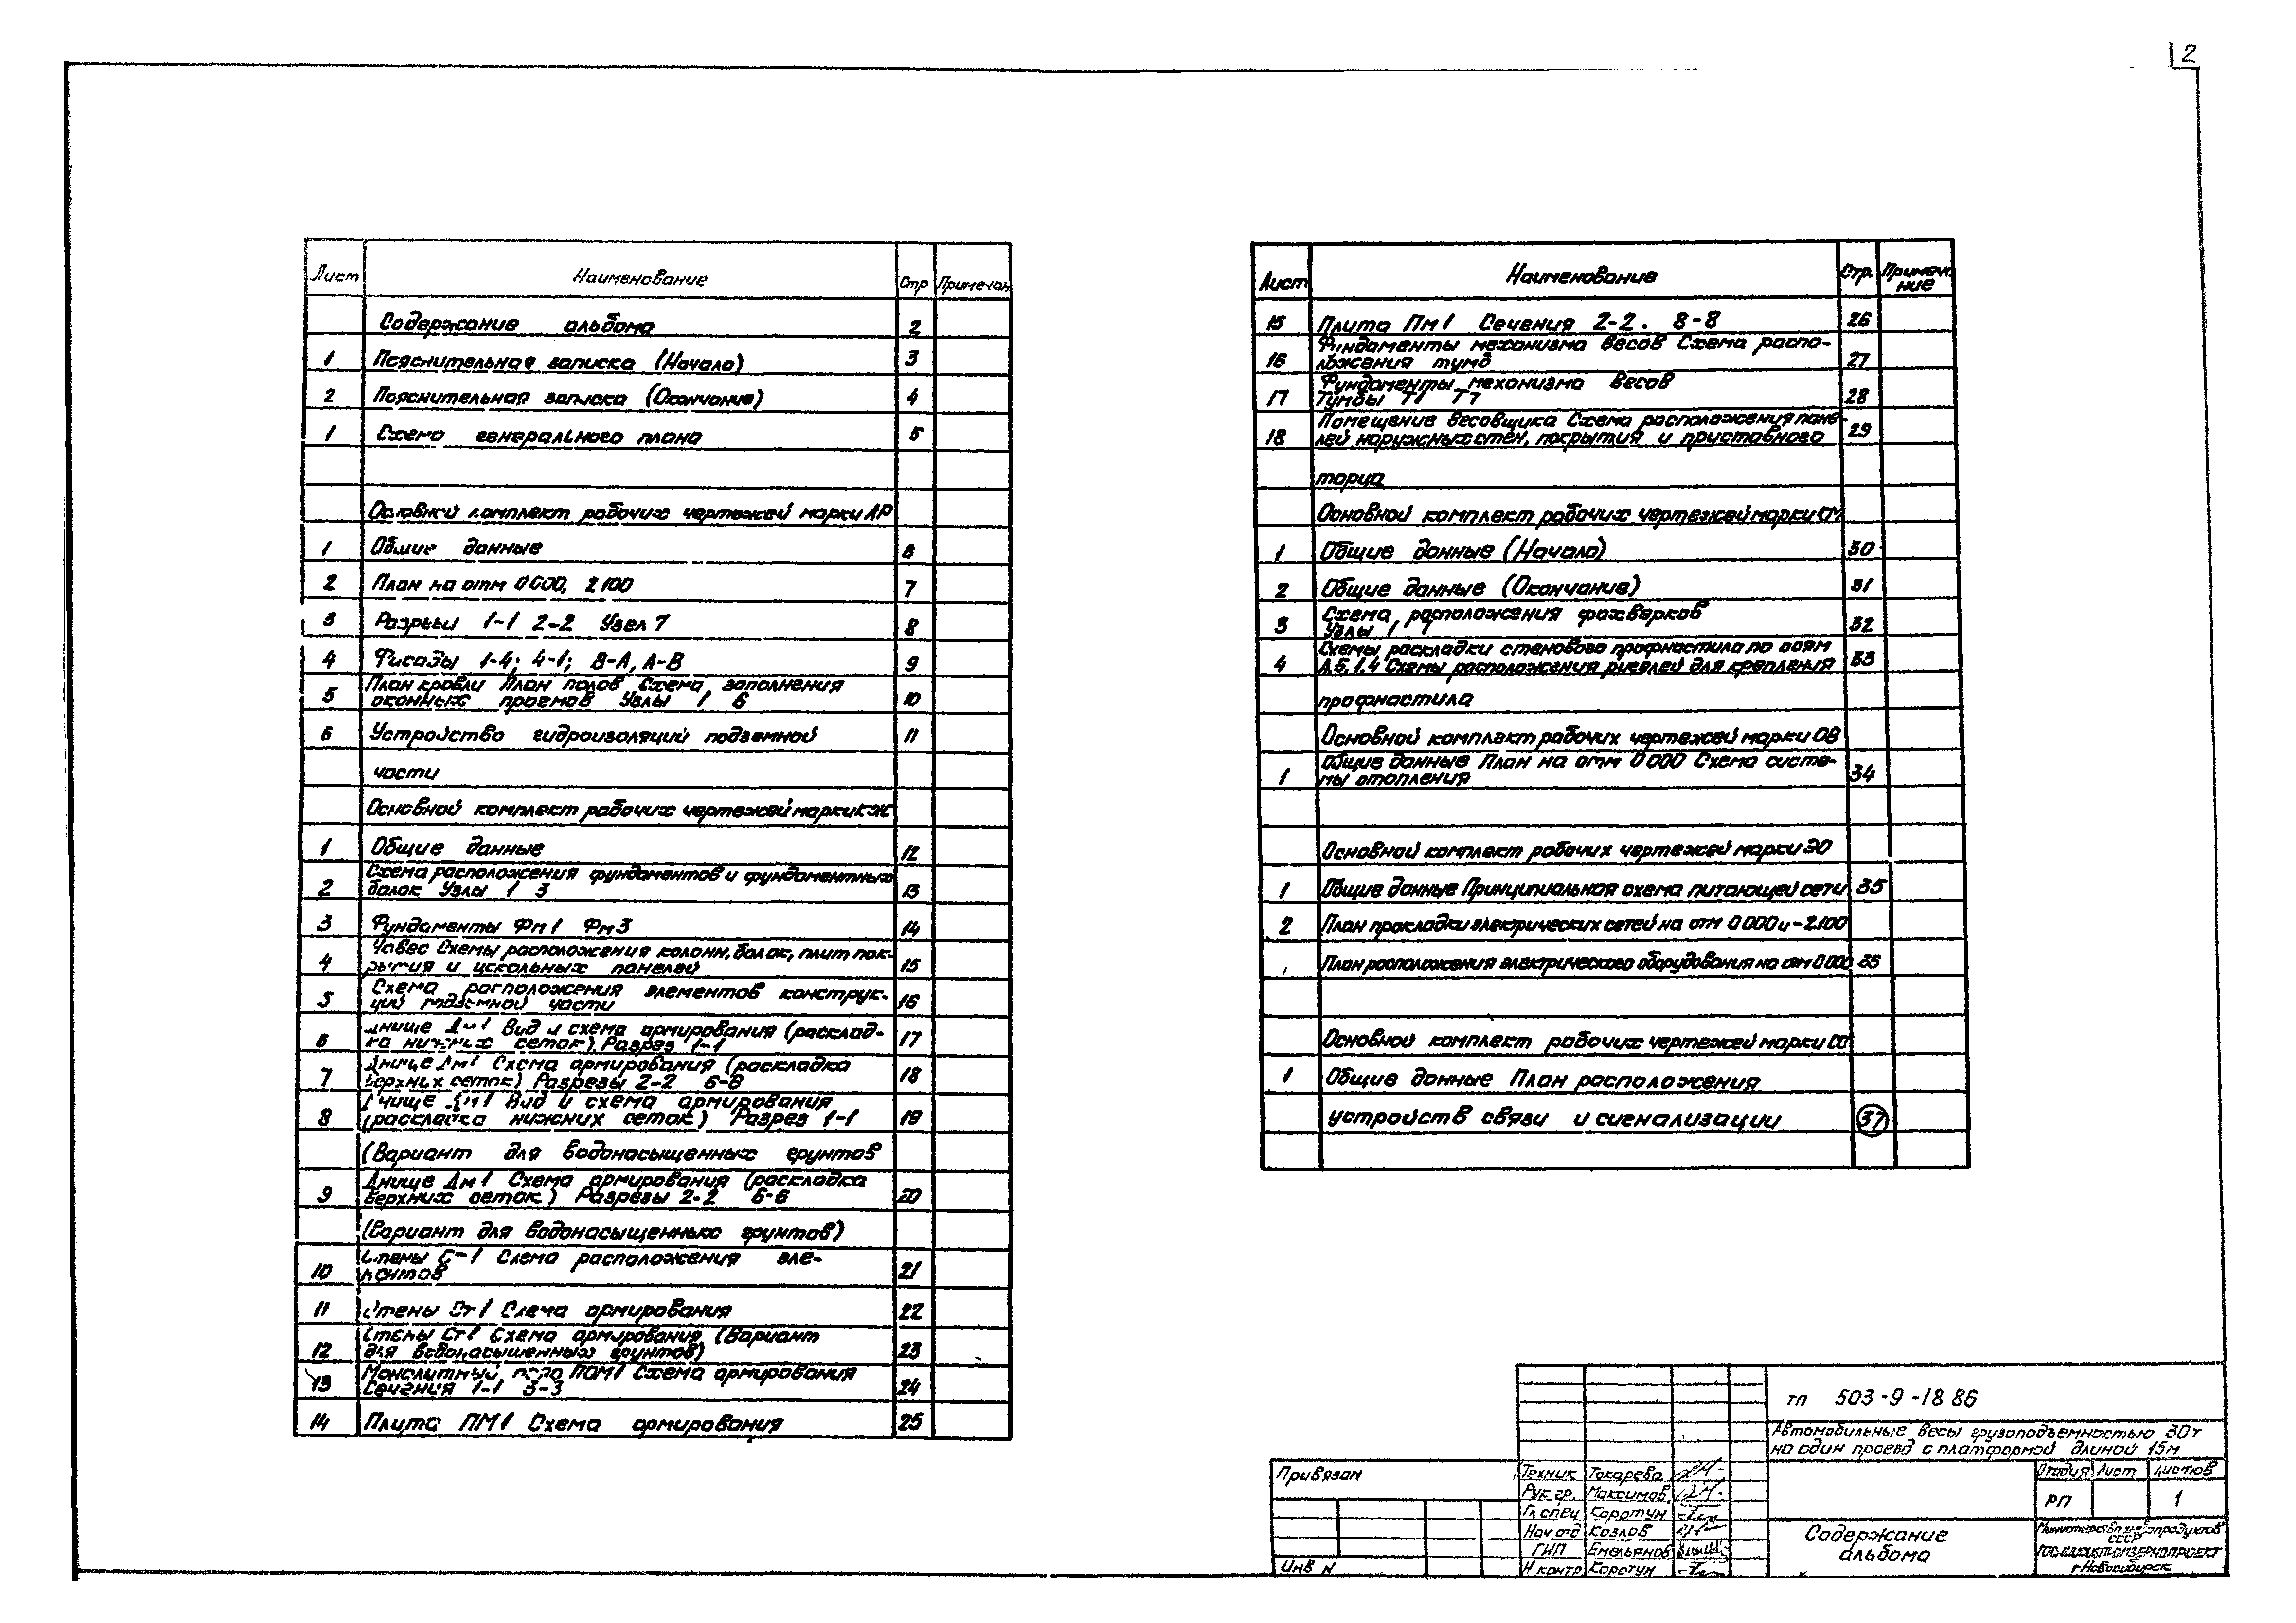 2
Лист Наименование Стр Примечан
Содержание альбома 2
1 Пояснительная записка (Начало) 3
2 Пояснительная записка (Окончание) 4
1 Схема генерального плана 5
Основной комплект рабочих чертежей марки АР
1 Общие данные 6
2 План на отм 0 000, 2 100 7
3 Разрезы 1-1 2-2 Узел 7 8
4 Фасады 1-4; 4-1; В-А, А-В 9
План кровли План полов Схема заполнения
5 оконных проемов Узлы 1 6 10
6 Устройство гидроизоляций подземной 11
части
Основной комплект рабочих чертежей марки КЖ
1 Общие данные 12
Схема расположения фундаментов и фундаментных
2 балок Узлы 1 3 13
3 Фундаменты Фм1 Фм3 14
Навес Схемы расположения колонн, балок, плит пок-
4 рытия и цокольных панелей 15
Схема расположения элементов конструк-
5 ций подземной части 16
Днище Дм1 Вид и схема армирования (расклад-
6 ка нижних сеток). Разрез 1-1 17
Днище Дм1 Схема армирования (раскладка
7 верхних сеток) Разрезы 2-2 6-6 18
Днище Дм1 Вид и схема армирования
8 (раскладка нижних сеток) Разрез 1-1 19
(Вариант для водонасыщенных грунтов
Днище Дм1 Схема армирования (раскладка
9 верхних сеток) Разрезы 2-2 6-6 20
(Вариант для водонасыщенных грунтов)
Стены С-1 Схема расположения эле-
10 ментов 21
11 Стены Ст1 Схема армирования 22
Стены Ст1 Схема армирования (Вариант
12 для водонасыщенных грунтов) 23
Монолитный пояс ПОМ1 Схема армирования
13 Сечения 1-1 3-3 24
14 Плита ПМ1 Схема армирования 25
Лист Наименование Стр. Примеча
ние
15 Плита Пм1 Сечения 2-2. 8-8 26
Фундаменты механизма весов Схема распо-
16 ложения тумб 27
Фундаменты механизма весов
17 Тумбы Т1 Т7 28
Помещение весовщика Схема расположения пане-
18 лей наружных стен, покрытия и приставного 29
торца
Основной комплект рабочих чертежей марки
1 Общие данные (Начало) 30
2 Общие данные (Окончание) 31
Схема расположения фахверков
3 Узлы 1 7 32
Схемы раскладки стенового профнастила по осям
4 А, Б, 1, 4 Схемы расположения ригелей для крепления 33
профнастила
Основной комплект рабочих чертежей марки ОВ
Общие данные План на отм 0 000 Схема систе-
1 мы отопления 34
Основной комплект рабочих чертежей марки ЭО
1 Общие данные Принципиальная схема питающей сети 35
2 План прокладки электрических сетей на отм 0 000 и -2.100
План расположения электрического оборудования на отм 0 000
Основной комплект рабочих чертежей марки СС
1 Общие данные План расположения
устройств связи и сигнализации 37
ТП 503-9-18 86
Автомобильные весы грузоподъемностью 30т
на один проезд с платформой длиной 15м
Привязан
Инв N
Техник Токарева
Рук гр. Максимов
Гл спец Коротун
Нач отд Козлов
ГИП Емельянов
Н контр Коротун
Стадия Лист Листов
РП 1
Содержание
альбома
Министерство хлебопродуктов
СССР
г Новосибирск